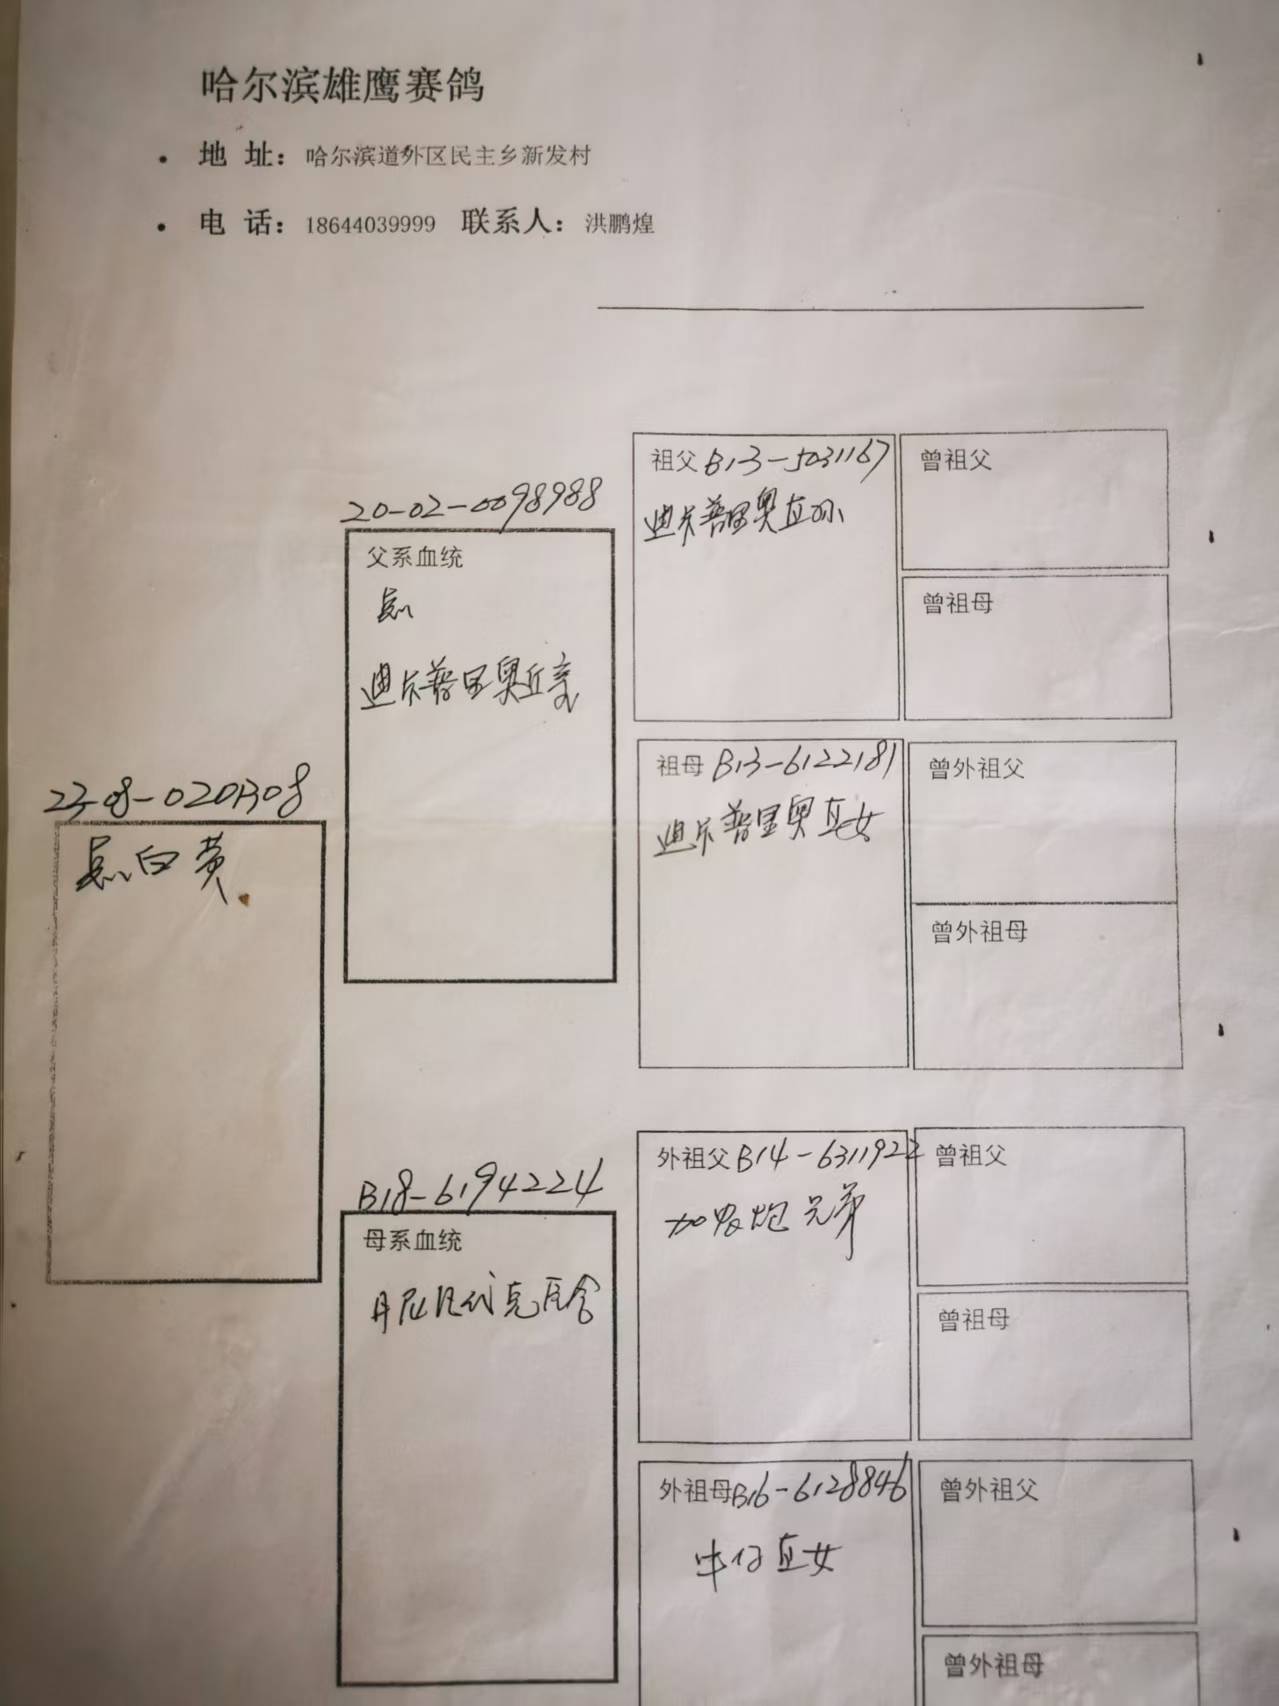 哈尔滨雄鹰赛鸽
• 地 址：哈尔滨道外区民主乡新发村
• 电 话：18644039999 联系人：洪鹏煌
祖父 B13-5031167
迪尔普里奥直孙
曾祖父
曾祖母
20-02-0098988
父系血统
迪尔普里奥近亲
祖母 B13-6122181
迪尔普里奥直女
曾外祖父
曾外祖母
白黄
外祖父 B14-6311922
兄弟
曾祖父
曾祖母
B18-6194224
母系血统
外祖母 B16-6128846
牛仔直女
曾外祖父
曾外祖母